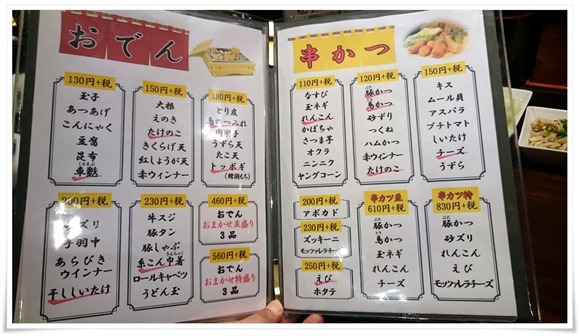 おでん
130円+税
玉子
あつあげ
こんにゃく
豆腐
昆布
車麩
くるまぶ
150円+税
大根
えのき
たけのこ
きくらげ天
紅しょうが天
赤ウインナー
180円+税
とり皮
鳥のつみれ
肉団子
うずら天
たこ天
トッポギ
(韓国もち)
200円+税
ズリ
手羽中
あらびき
ウインナー
干ししいたけ
230円+税
牛スジ
豚タン
豚しゃぶ
糸こん巾着
きんちゃく
ロールキャベツ
うどん玉
460円+税
おでん
おまかせ並盛り
3品
560円+税
おでん
おまかせ特盛り
3品
串かつ
110円+税
なすび
玉ネギ
れんこん
かぼちゃ
さつま芋
オクラ
ニンニク
ヤングコーン
120円+税
ぶた
豚かつ
とり
鳥かつ
砂ずり
つくね
ハムかつ
赤ウインナー
たけのこ
150円+税
キス
ムール貝
アスパラ
プチトマト
しいたけ
チーズ
うずら
200円+税
アボカド
230円+税
ズッキーニ
モッツァレラチーズ
250円+税
えび
ホタテ
串カツ並
610円+税
ぶた
豚かつ
とり
鳥かつ
玉ネギ
れんこん
チーズ
串カツ特
830円+税
ぶた
豚かつ
砂ズリ
れんこん
えび
モッツァレラチーズ